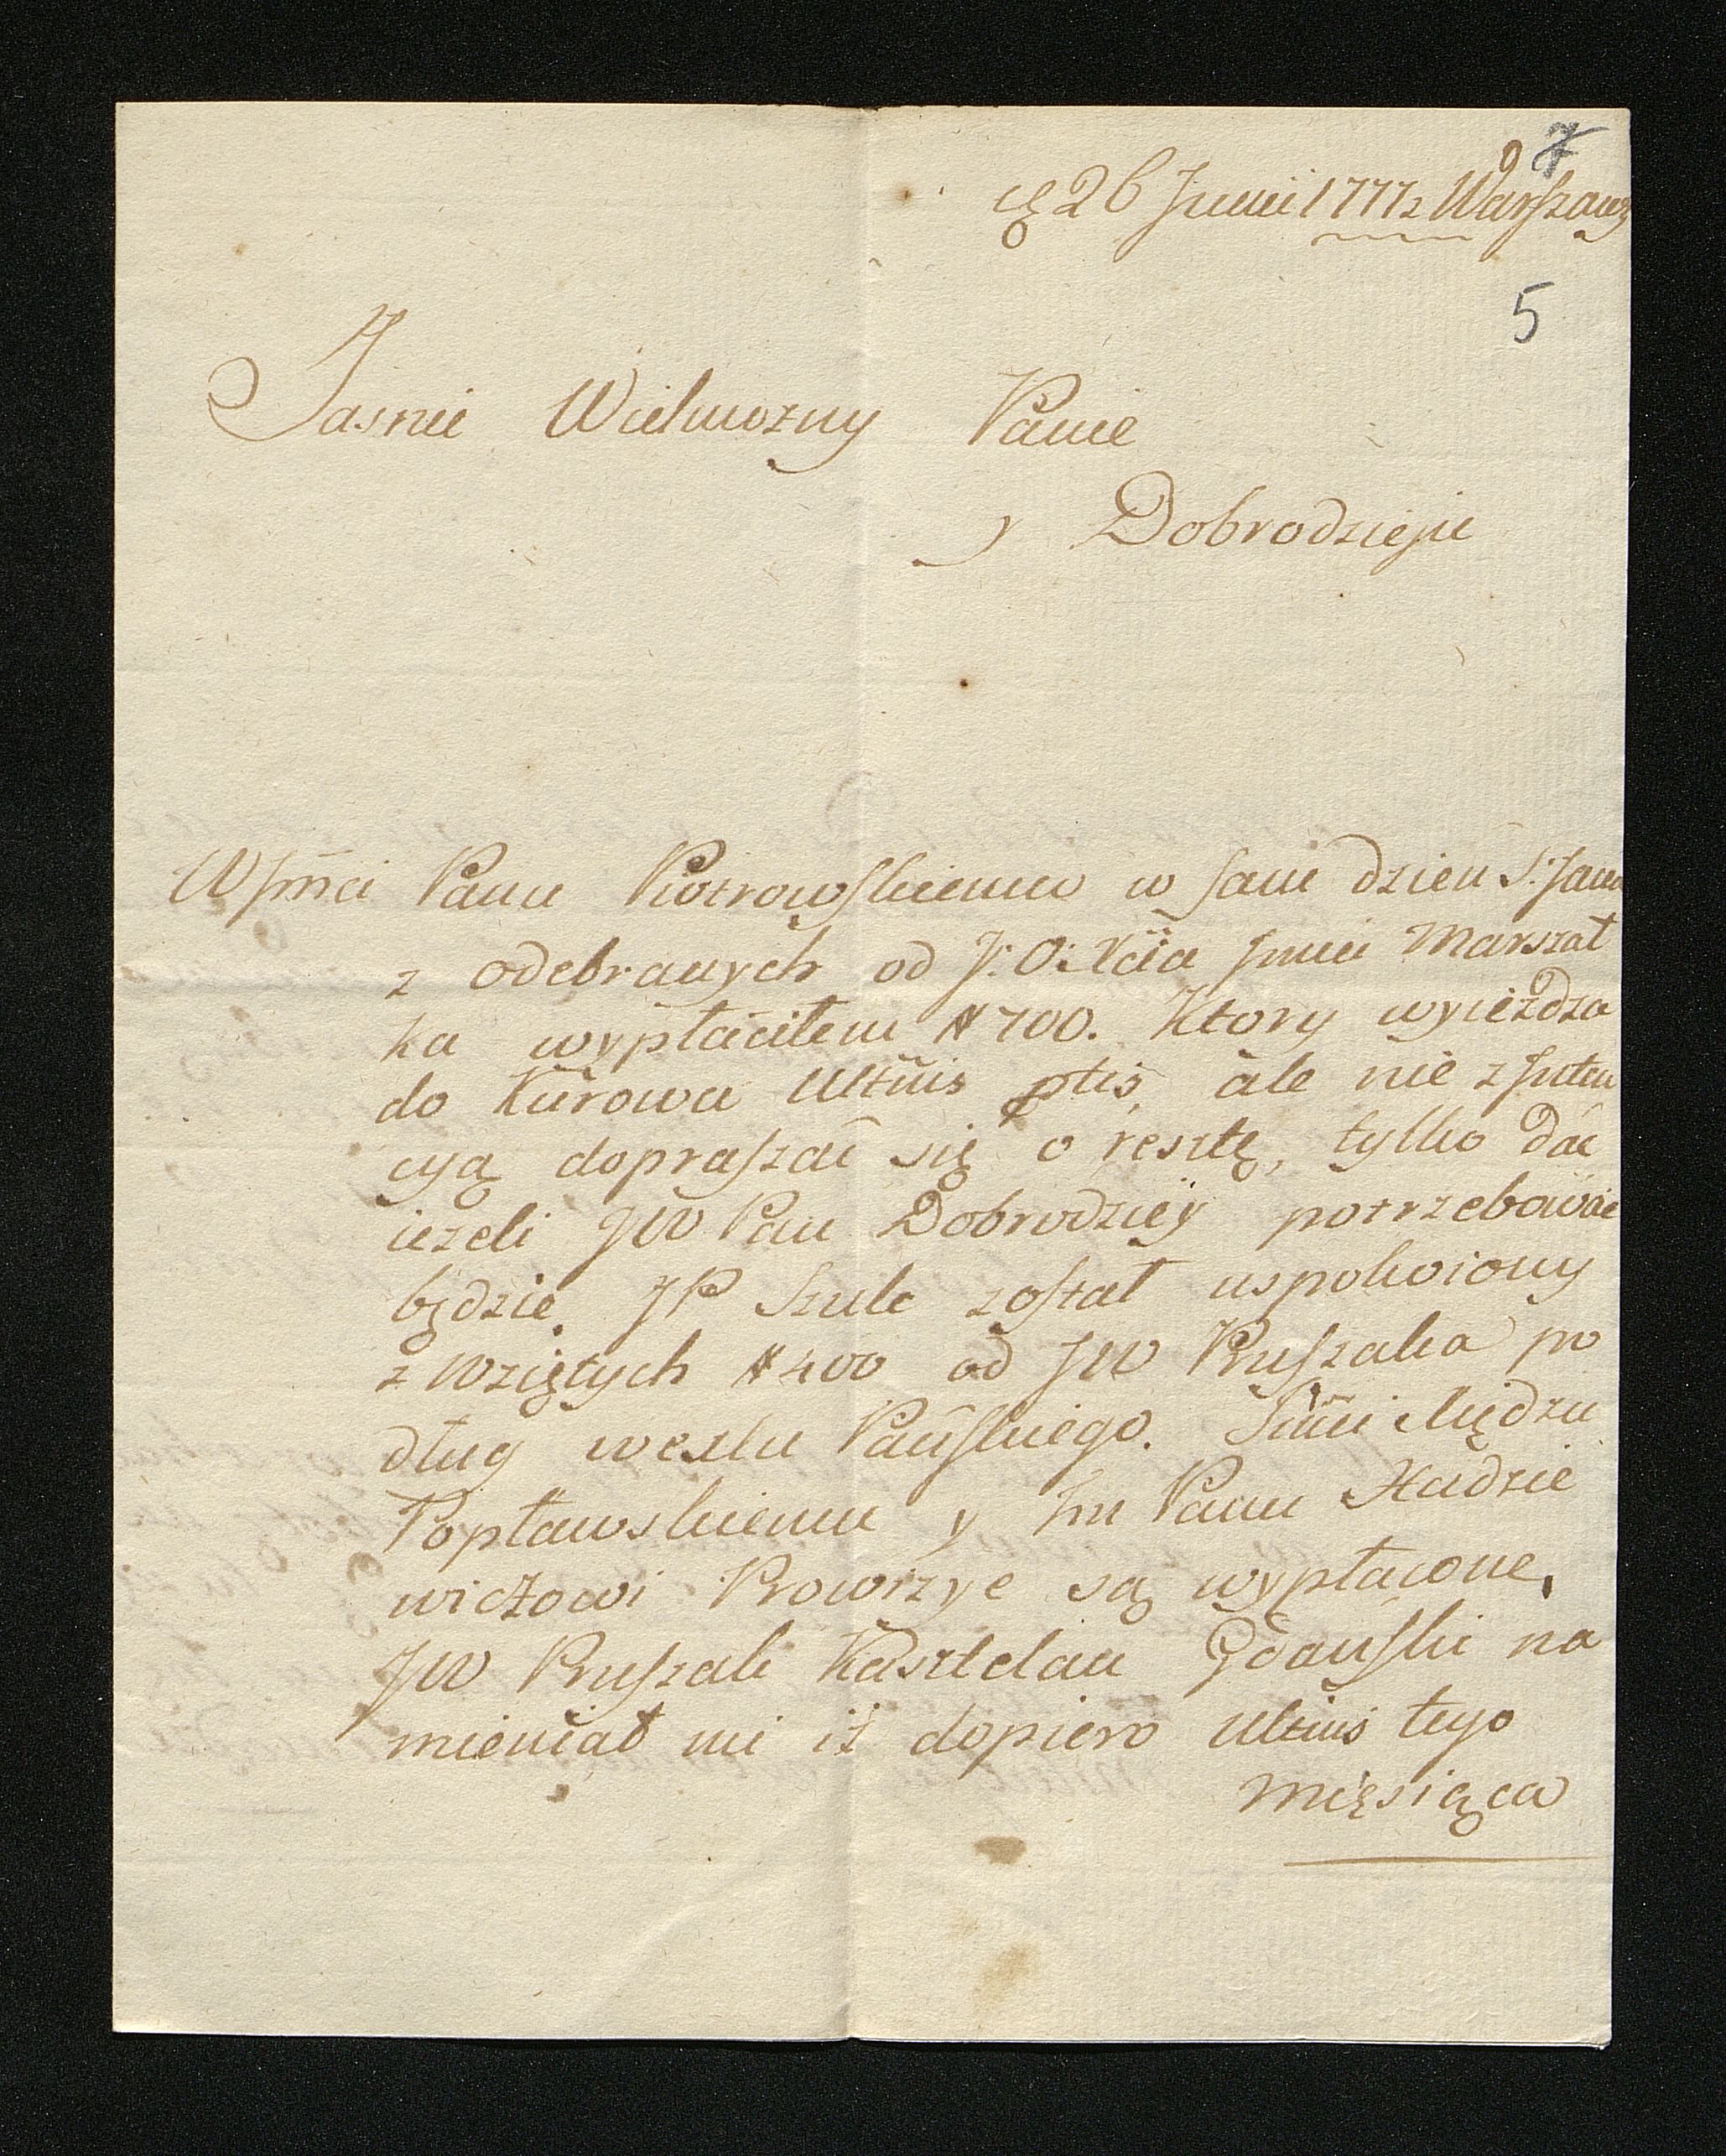 9 7
26 Junii 1777 z Warszawy
5
Jasnie Wielmozny Panie
y Dobrodzieju
W Jmci Panu Piotrowskiemu w sam dzien S: Jana
z odebranych od J: O: Xcia Jmci Marszał
ka wypłaciłem # 700. Ktory wyieżdza
do Kurowa Ultimis ale nie z Inten
cyą dopraszać się o resztę, tylko dać
ieżeli JW Pan Dobrodziey potrzebować
będzie. JP Szulc został uspokoiony
z wziętych # 400 od JW Pruszaka po
dług wexlu Pańskiego. Jmci Xiędzu
Popławskiemu y Jm Panu Kudzie
wiczowi Prowizye są wypłacone.
JW Pruszak Kasztelan Gdański na
mieniał mi iż dopiero ultimis tego
Mięsiąca